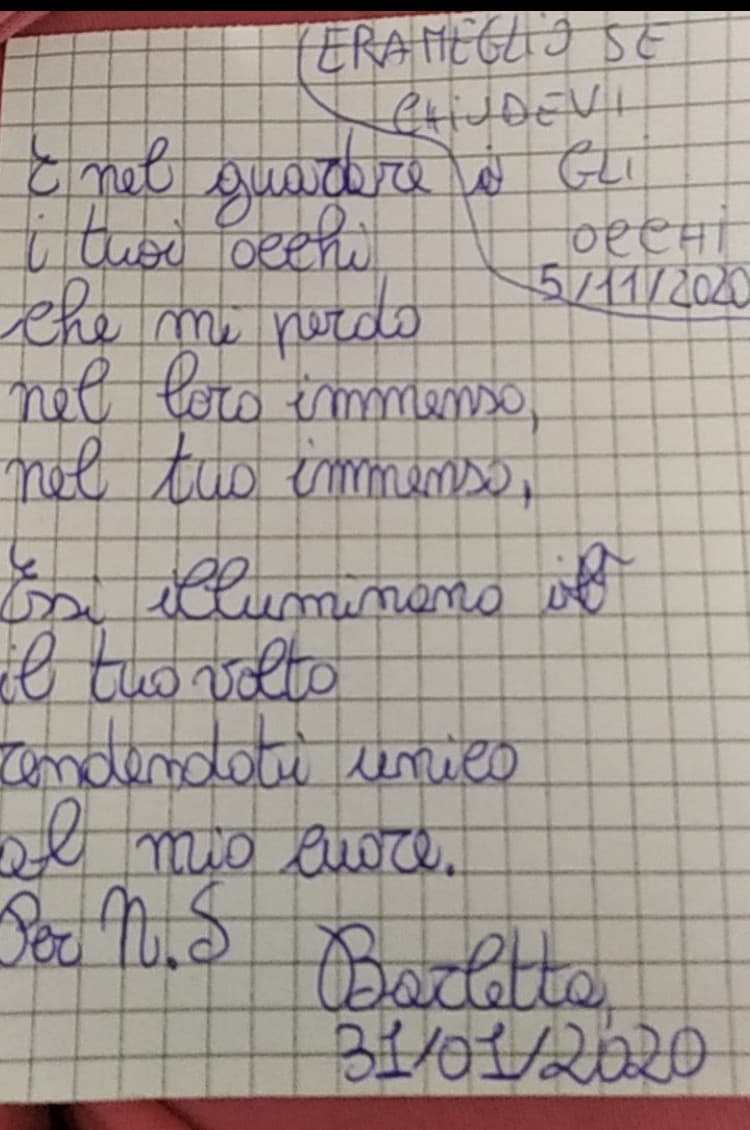 ERA MEGLIO SE
CHIUDEVI
GLI
OCCHI
5/11/2020
È nel guardare
i tuoi occhi
che mi perdo
nel loro immenso,
nel tuo immenso,
Essi illuminano
il tuo volto
rendendoti unico
al mio cuore.
Per N.S
Barletta,
31/01/2020